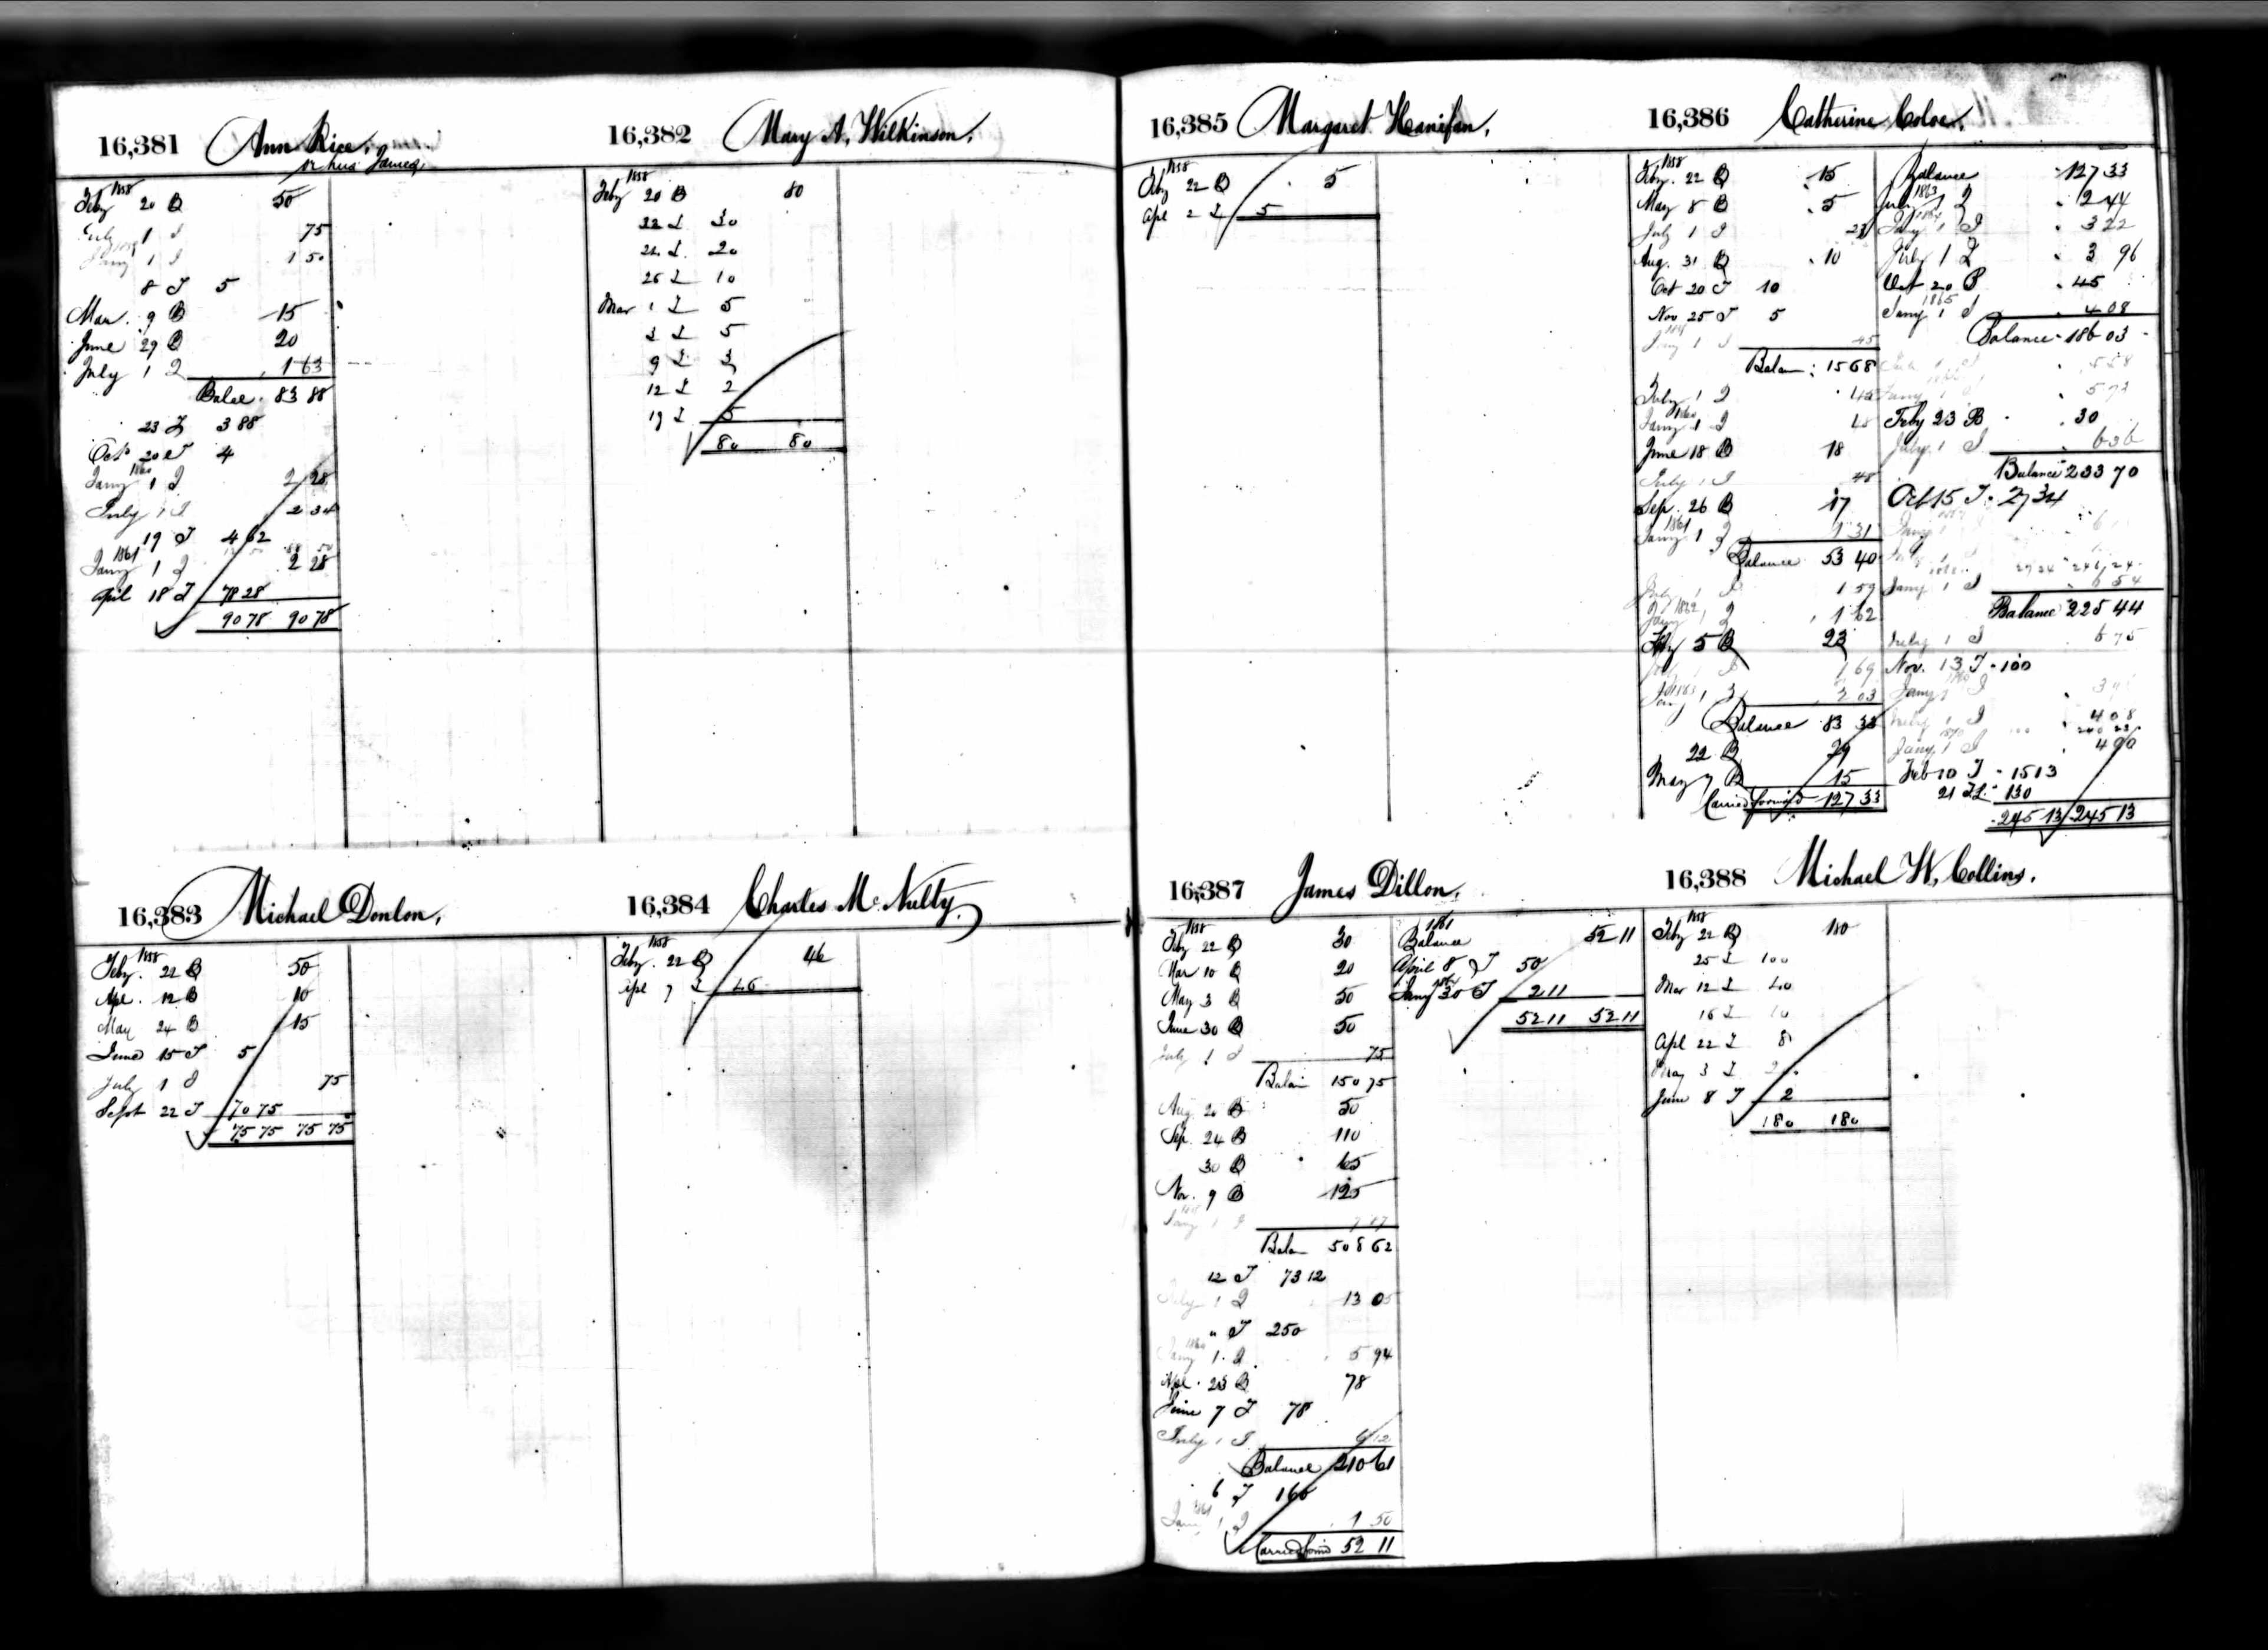 16,381 Ann Rice,
or hus James,
1858
Feby 20 B 50
July 1 I 75
1859
Jany 1 I 1 50
8 I 5
Mar. 9 B 15
June 29 B 20
July 1 I 1 63
Balce. 83 88
23 I 3 88
Oct 20 I 4
1860
Jany 1 I 2 28
July 1 I 2 34
19 I 4 62
1861
Jany 1 I 2 28
April 18 I 78 28
90 78 90 78
16,382 Mary A. Wilkinson,
1858
Feby 20 B 80
22 I 30
24 I 20
26 I 10
Mar 1 I 5
3 I 5
9 I 3
12 I 2
19 I 5
80 80
16,383 Michael Donlon,
1858
Feby. 22 B 50
Apl. 12 B 10
May 24 B 15
June 15 I 5
July 1 I 75
Sept 22 I 70 75
75 75 75 75
16,384 Charles Mc Nulty.
1858
Feby. 22 B 46
Apl 7 I 46
16,385 Margaret Hanifan,
1858
Feby 22 B 5
Apl 2 I 5
16,386 Catherine Coloe,
1858
Feby. 22 B 15
May 8 B 5
July 1 I 23
Aug. 31 B 10
Oct 20 I 10
Nov 25 I 5
1859
Jany 1 I 45
Balan: 15 68
July 1 I 45
1860
Jany 1 I 48
June 18 B 18
July 1 I 48
Sep. 26 B 17
1861
Jany 1 I 1 31
Balance 53 40
July 1 I 1 59
1862
Jany 1 I 1 62
5 B 23
July 1 I 1 69
1863
Jany 1 I 2 03
Balance 83 33
22 B 29
May 7 B 15
Carried forward 127 33
Balance 127 33
1863
July 1 I 2 44
1864
Jany 1 I 3 22
July 1 I 3 96
Oct 20 B 45
1865
Jany 1 I 4 08
Balance 186 03
July 1 I 5 58
1866
Jany 1 I 5 72
Feby 23 B 30
July 1 I 6 36
Balance 233 70
Oct 15 I 27 34
Jany 1
July 1 I
27 34 246 24
Jany 1 I 6 54
Balance 225 44
July 1 I 6 75
Nov. 13 I 100
Jany 1 I
July 1 I 4 08
1870
Jany 1 I 4 90
Feb 10 I 15 13
21 I 130
245 13 245 13
16,387 James Dillon,
1858
Feby 22 B 30
Mar 10 B 20
May 3 B 50
June 30 B 50
July 1 I 75
Balan 150 75
Aug. 20 B 50
Sep. 24 B 110
30 B 65
Nov. 9 B 125
1859
Jany 1 I 7 87
Balan 508 62
12 I 73 12
July 1 I 13 05
" I 250
1860
Jany 1 I 5 94
Apl. 23 B 78
June 7 I 78
July 1 I 6 12
Balance 210 61
6 I 160
1861
Jany 1 I 1 50
Carried forwd 52 11
1861
Balance 52 11
April 8 I 50
Jany 30 I 2 11
52 11 52 11
16,388 Michael W. Collins,
1858
Feby 22 B 180
25 I 100
Mar 12 I 40
16 I 10
Apl 22 I 8
May 3 I
June 8 I 2
180 180